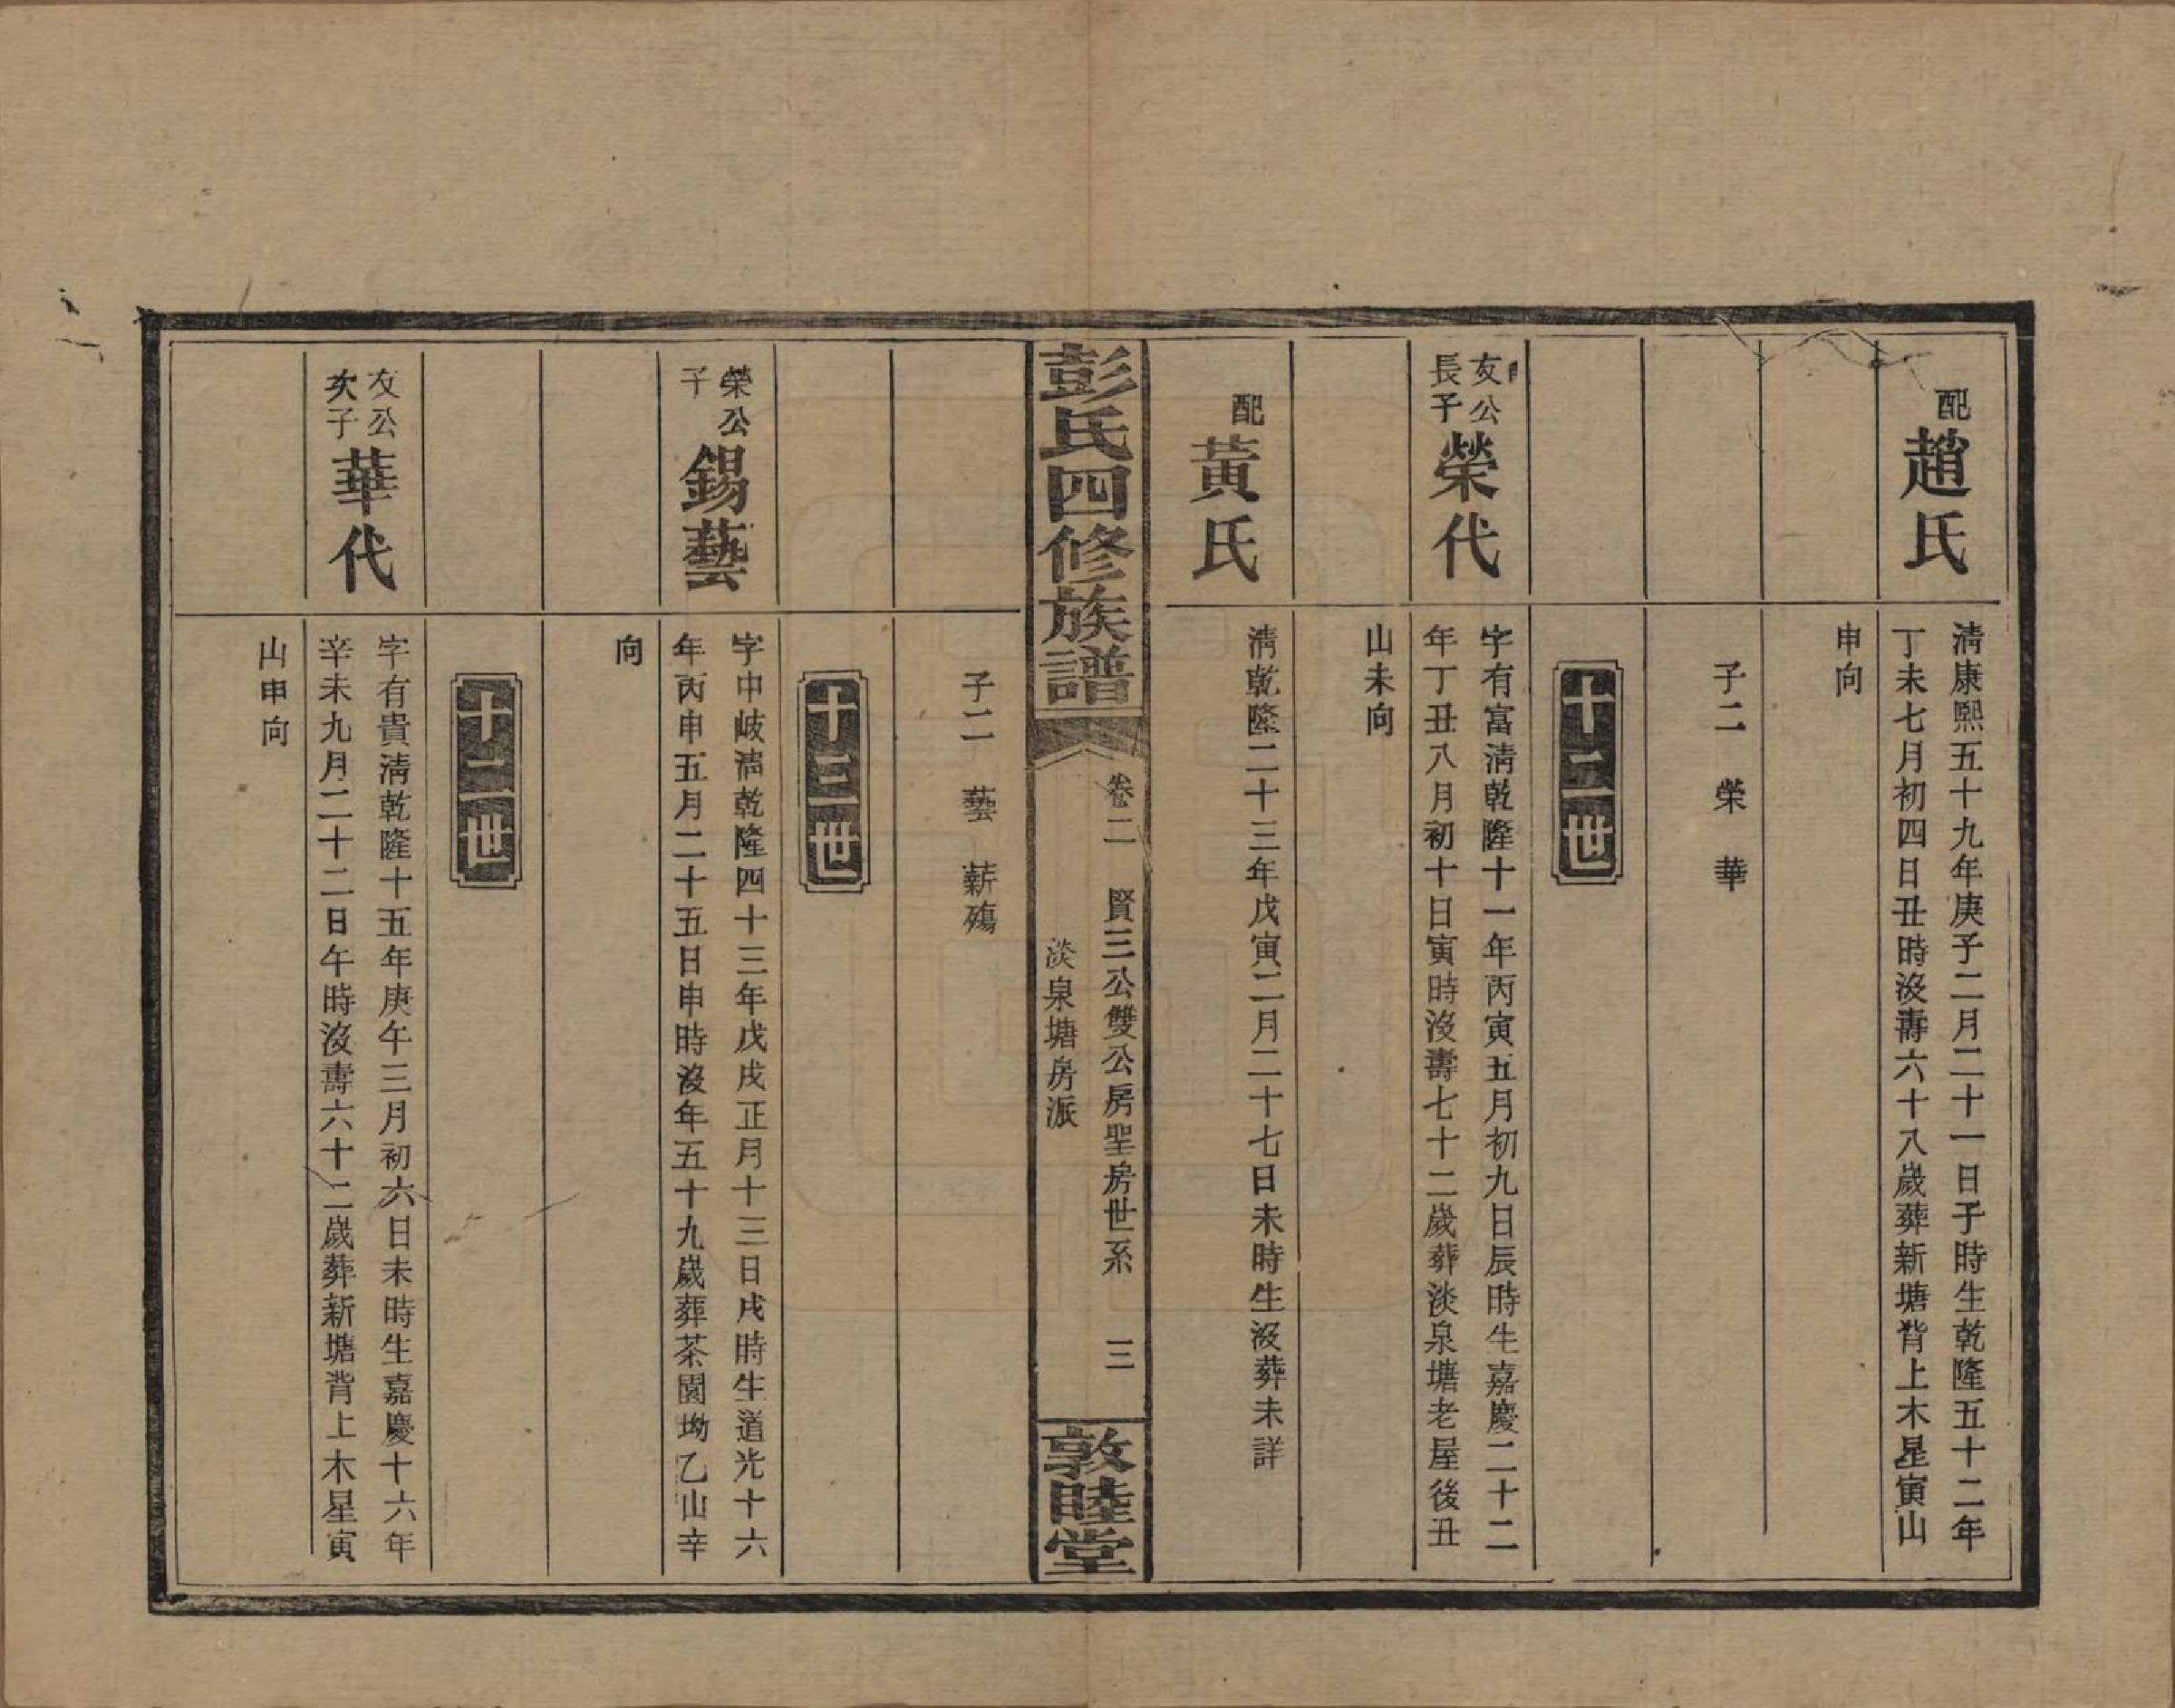 配趙氏
清康熙五十九年庚子二月二十一日子時生乾隆五十二年
丁未七月初四日丑時沒壽六十八歲葬新塘背上木星寅山
申向
子二 榮 華
十二世
友公長子榮代
字有富清乾隆十一年丙寅五月初九日辰時生嘉慶二十二
年丁丑八月初十日寅時沒壽七十二歲葬淡泉塘老屋後丑
山未向
配黃氏
清乾隆二十三年戊寅二月二十七日未時生沒葬未詳
彭氏四修族譜
卷二 賢三公雙公房聖房世系 三
淡泉塘房派
敦睦堂
子二 藝 薪殤
十三世
榮公子錫藝
字中岐清乾隆四十三年戊戌正月十三日戌時生道光十六
年丙申五月二十五日申時沒年五十九歲葬茶園坳乙山辛
向
十二世
友公次子華代
字有貴清乾隆十五年庚午三月初六日未時生嘉慶十六年
辛未九月二十二日午時沒壽六十二歲葬新塘背上木星寅
山申向